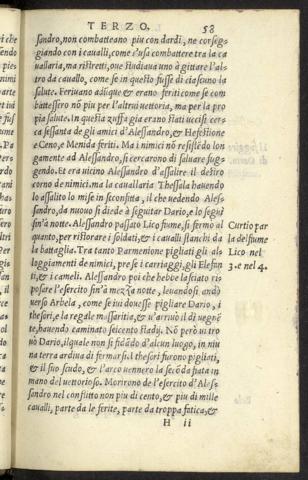 TERZO. 58
sandro, non combatteano piu con dardi, ne corseg=
giando con i caualli, come s'usa combattere tra la ca
uallaria, ma ristretti, oue studiaua uno à gittare l'al=
tro da cauallo, come se in questo fusse di ciascuno la
salute. Feriuano adũque & erano feriti come se com=
battessero nõ piu per l'altrui uettoria, ma per la pro=
pia salute. In questa zuffa gia erano stati uccisi cer=
ca sessanta de gli amici d'Alessandro, & Hefestione
e Ceno, e Menida feriti. Ma i nimici nõ resistẽdo lon
gamente ad Alessandro, si cercarono di saluare fug=
gendo. Et era uicino Alessandro d'assalire il destro
corno de nimici. ma la cauallaria Thessala hauendo
lo assalito lo mise in sconfitta, il che uedendo Ales=
sandro, da nuouo si diede à seguitar Dario, e lo seguì
sin'à notte. Alessandro passato Lico fiume, si fermo al
quanto, per ristorare i soldati, & i caualli stanchi da
la battaglia. Tra tanto Parmenione pigliati gli al=
loggiamenti de nimici, prese i carriaggi, gli Elefan
ti, & i cameli. Alessandro poi che hebbe lasciato ri=
posare l'esercito sin'à mezza notte, leuandosi andò
verso Arbela, come se iui douesse pigliare Dario, i
thesori, e la regale massaritia, & u'arriuò il dì uegnẽ
te, hauendo caminato seicento stadij. Nõ però ui tro
uò Dario, il quale non si fidãdo d'alcun luogo, in niu
na terra ardiua di fermarsi. I thesori furono pigliati,
& il suo scudo, & l'arco uennero la secõda fiata in
mano del uettorioso. Morirono de l'esercito d'Ales=
sandro nel conflitto non piu di cento, & piu di mille
caualli, parte da le ferite, parte da troppa fatica, &
H ii
Curtio par
la del fiume
Lico nel
3. e nel 4.